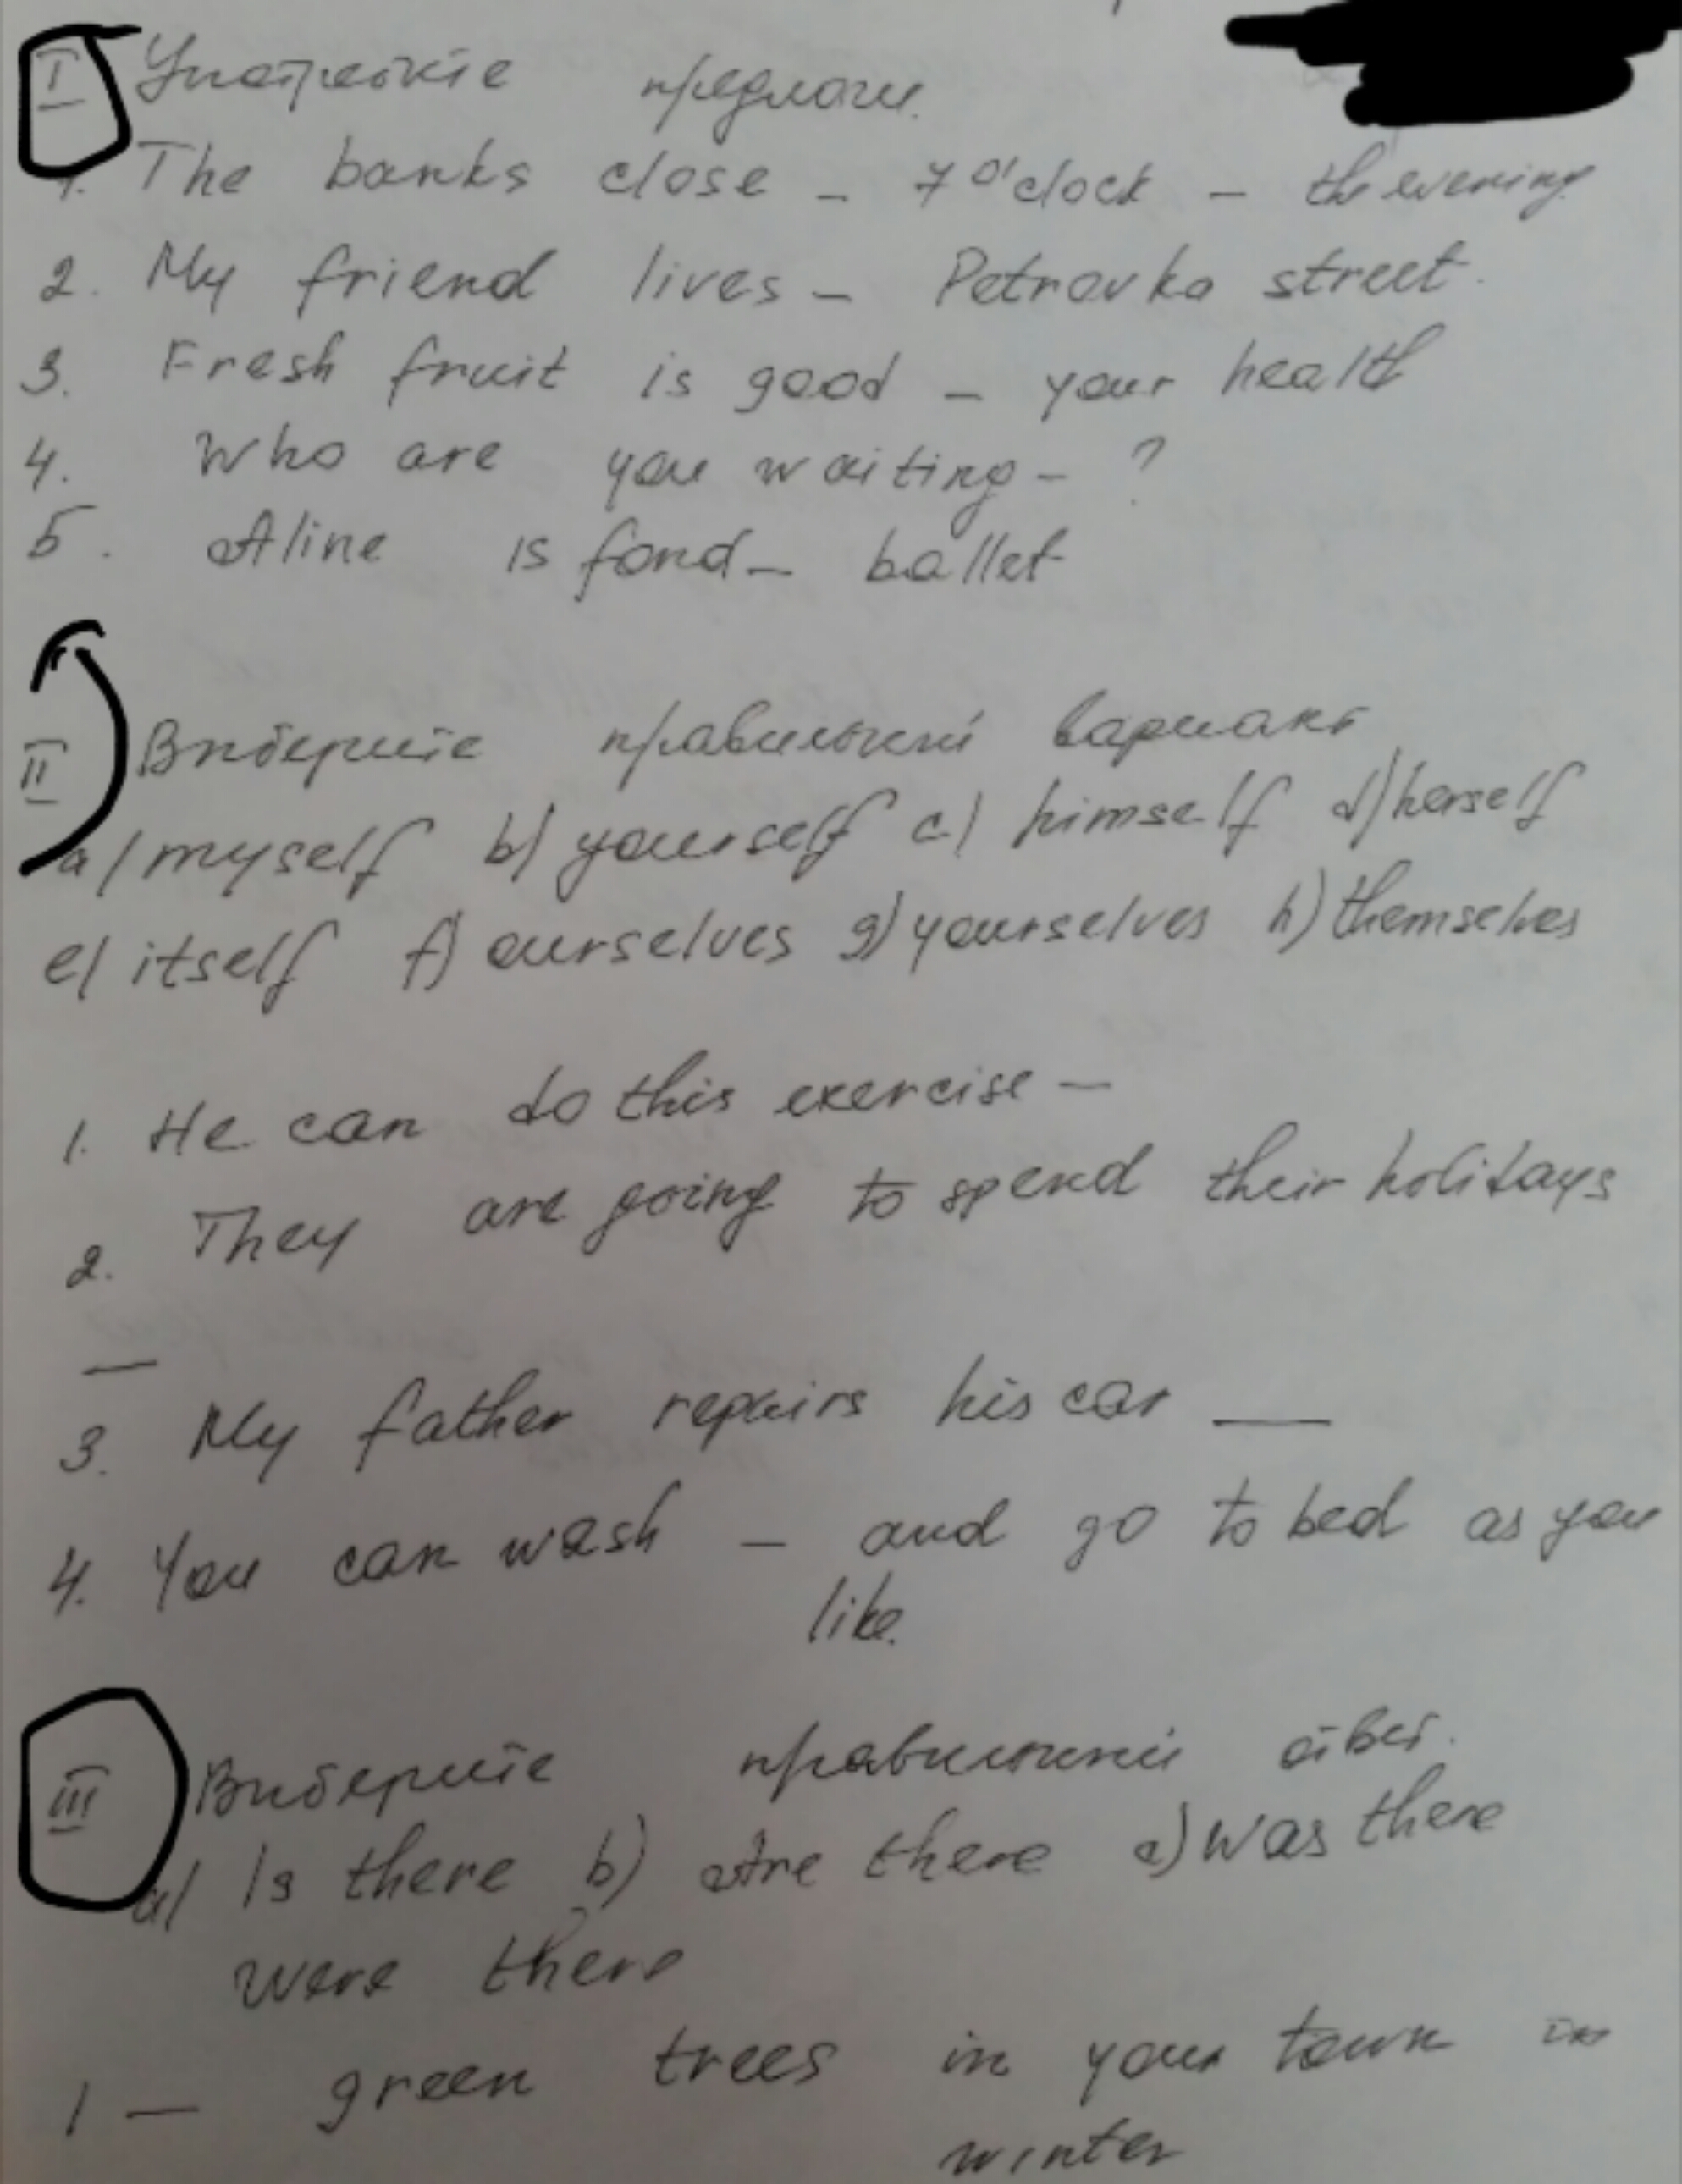 I Употребите предлоги.
1. The banks close – 7 o'clock – the evening.
2. My friend lives – Petrovka street.
3. Fresh fruit is good – your health
4. Who are you waiting – ?
5. Aline is fond – ballet
II Выберите правильный вариант
a) myself b) yourself c) himself d) herself
e) itself f) ourselves g) yourselves h) themselves
1. He can do this exercise –
2. They are going to spend their holidays
—
3. My father repairs his car —
4. You can wash – and go to bed as you
like.
III Выберите правильный ответ.
a) Is there b) Are there c) was there
were there
1 — green trees in your town in
winter